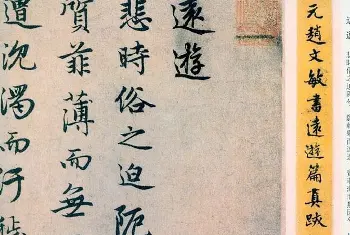 元趙文敏書遠遊篇真跡
遠遊
悲時俗之迫阨
質菲薄而無
遭沈濁而汙穢